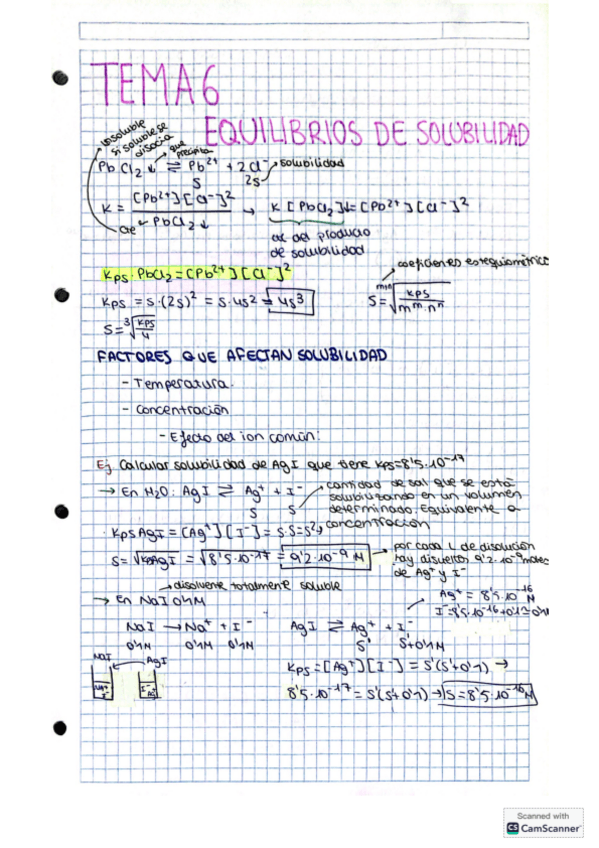 TEMA 6
EQUILIBRIOS DE SOLUBILIDAD
Insoluble
si soluble se
disocia
que
precipita
PbCl2↓ ⇌ Pb2+ + 2Cl- → solubilidad
S 2s
K = [Pb2+][Cl-]2 / PbCl2↓ → K[PbCl2]↓ = [Pb2+][Cl-]2
cte
cte del producto
de solubilidad
Kps·PbCl2 = [Pb2+][Cl-]2
coeficientes estequiométrico
Kps = s·(2s)2 = s·4s2 = 4s3
S = m+n√(Kps / m^m·n^n)
S = 3√(Kps/4)
FACTORES QUE AFECTAN SOLUBILIDAD
- Temperatura.
- Concentración
- Efecto del ion común:
Ej Calcular solubilidad de AgI que tiene Kps=8'5·10-17
→ En H2O: AgI ⇌ Ag+ + I-
S S
cantidad de sal que se está
solubilizando en un volumen
determinado. Equivalente a
concentración
· Kps AgI = [Ag+][I-] = s·s = s2
S = √KpsAgI = √8'5·10-17 = 9'2·10-9 M
por cada L de disolución
hay disueltos 9'2·10-9 moles
de Ag+ y I-
→ disolvente totalmente soluble
→ En NaI 0'1M
Ag+ = 8'5·10-16 M
I- = 8'5·10-16+0'1≃0'1M
NaI → Na+ + I-
0'1M 0'1M 0'1M
AgI ⇌ Ag+ + I-
S' S'+0'1M
NaI AgI
Na+
I-
I-
AgI
Kps = [Ag+][I-] = S'(S'+0'1) →
8'5·10-17 = S'(S'+0'1) → S = 8'5·10-16 M
Scanned with
CS CamScanner